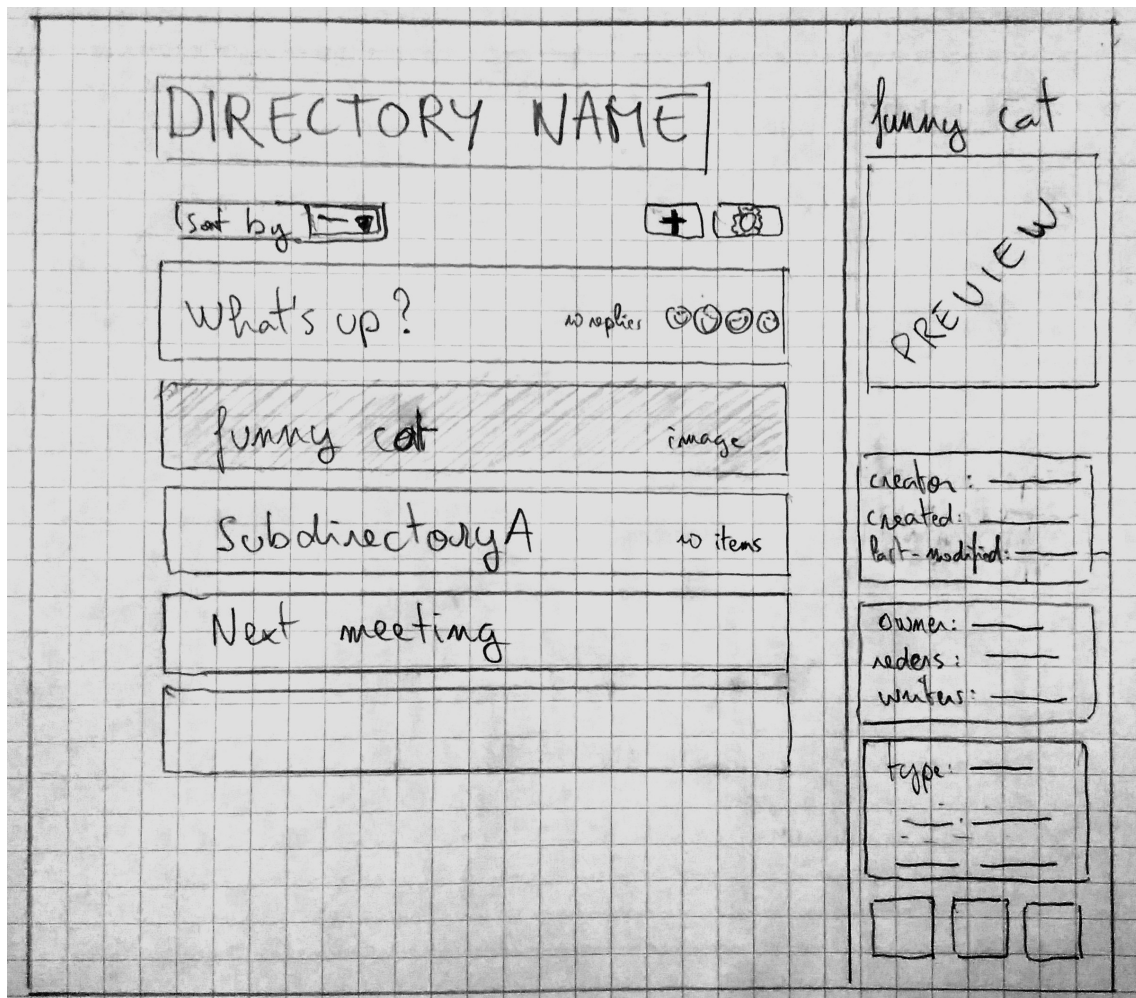 DIRECTORY NAME
sort by
What's up? 10 replies
funny cat image
SubdirectoryA 10 items
Next meeting
funny cat
PREVIEW
creator:
created:
last-modified:
owner:
reders:
writers:
type: